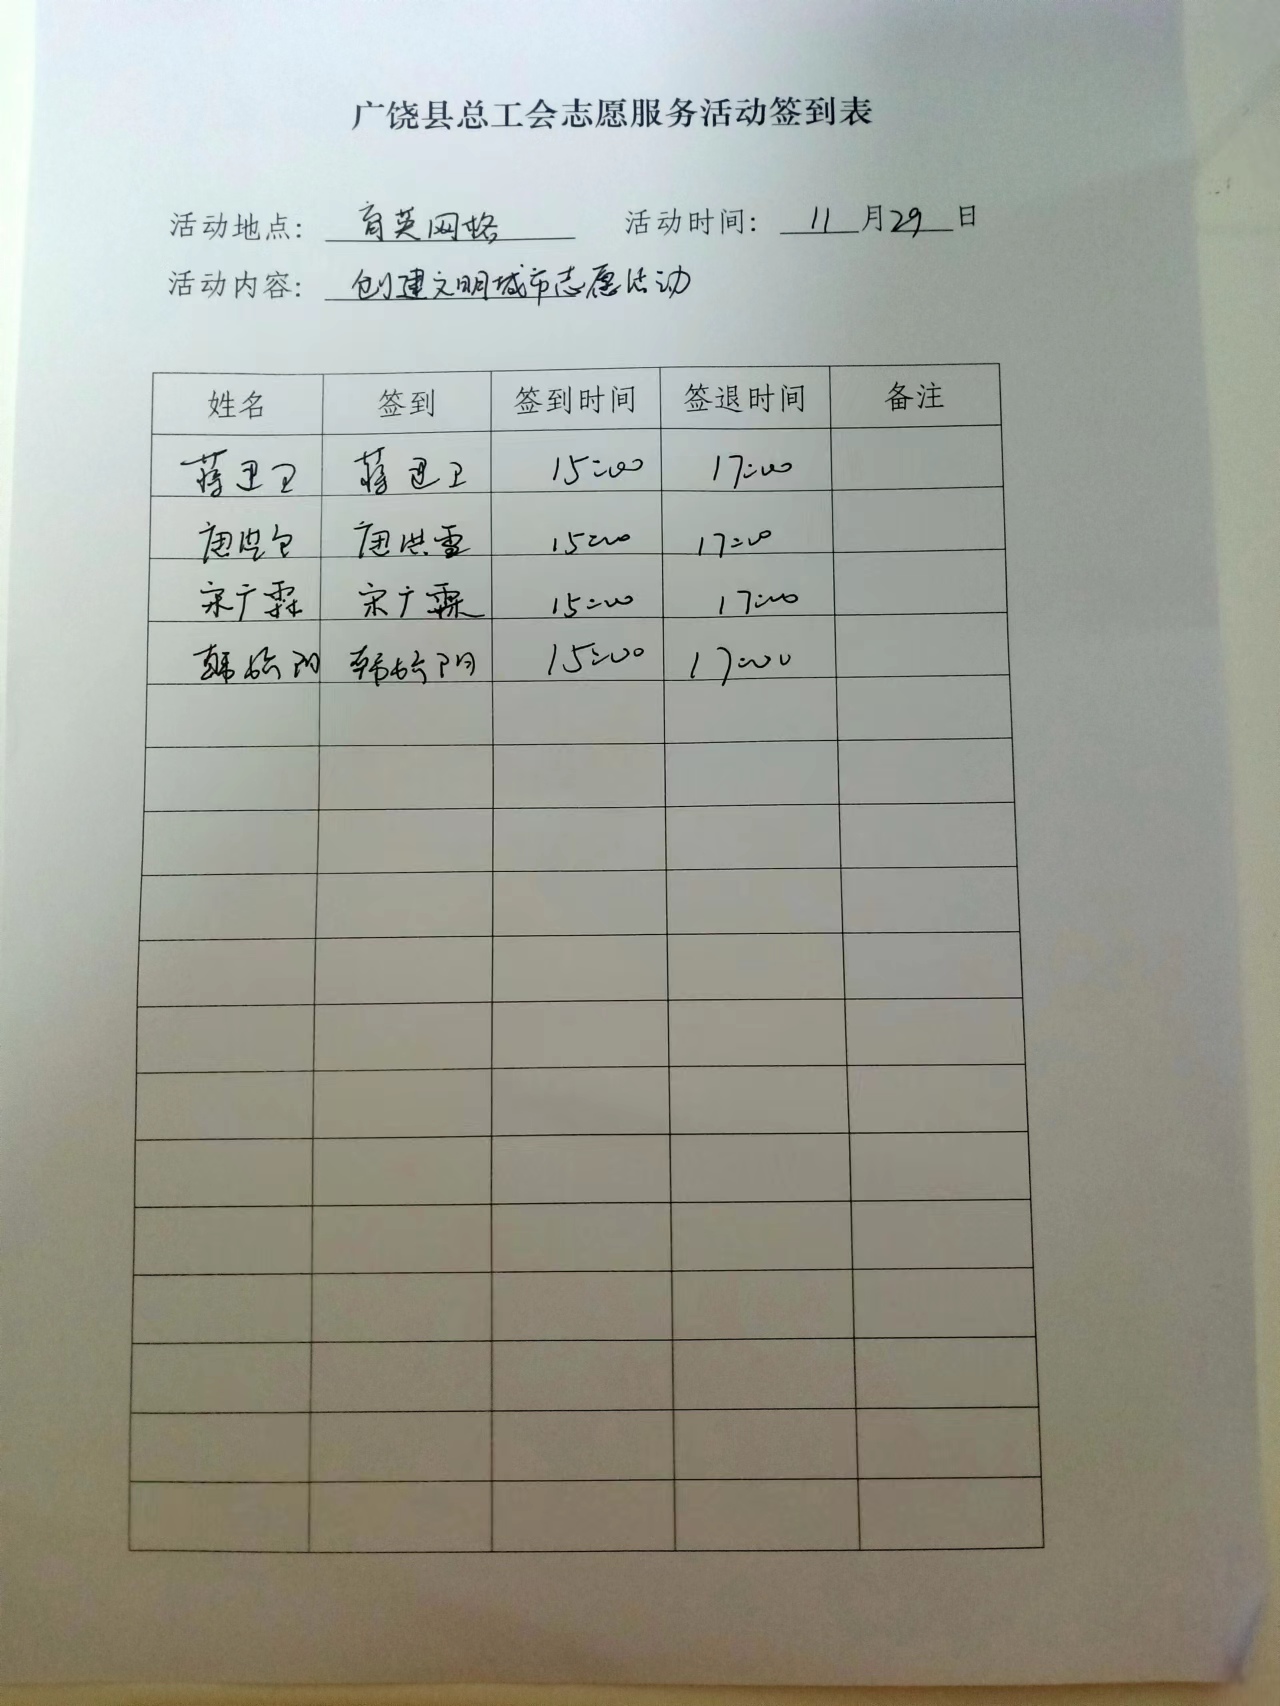 广饶县总工会志愿服务活动签到表
活动地点: 育英网格 活动时间: 11月29日
活动内容: 创建文明城市志愿活动
姓名 签到 签到时间 签退时间 备注
蒋建卫 蒋建卫 15:00 17:00
唐洪雪 唐洪雪 15:00 17:00
宋广霖 宋广霖 15:00 17:00
韩 阳 韩 阳 15:00 17:00